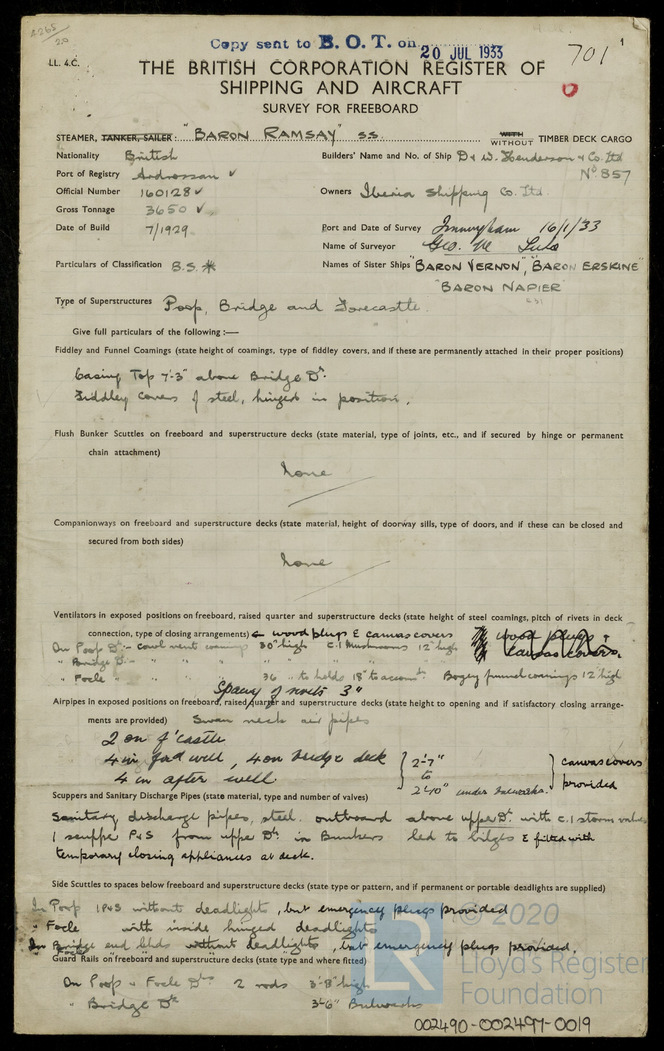 4265
20
Copy sent to B. O. T. on 20 JUL 1933
701
1
LL. 4.C.
THE BRITISH CORPORATION REGISTER OF
SHIPPING AND AIRCRAFT
SURVEY FOR FREEBOARD
STEAMER, TANKER, SAILER: "BARON RAMSAY" SS. WITH WITHOUT TIMBER DECK CARGO
Nationality British
Builders' Name and No. of Ship D & W. Henderson & Co. Ltd
No 857
Port of Registry Ardrossan ✓
Official Number 160128 ✓
Owners Iberia Shipping Co. Ltd.
Gross Tonnage 3650 ✓
Date of Build 7/1929
Port and Date of Survey Immingham 16/1/33
Name of Surveyor Geo. M
Particulars of Classification B.S.*
Names of Sister Ships "BARON VERNON", "BARON ERSKINE"
"BARON NAPIER"
Type of Superstructures Poop, Bridge and Forecastle.
Give full particulars of the following :—
Fiddley and Funnel Coamings (state height of coamings, type of fiddley covers, and if these are permanently attached in their proper positions)
Casing Top 7'-3" above Bridge Dk.
Fiddley covers of steel, hinged in position.
Flush Bunker Scuttles on freeboard and superstructure decks (state material, type of joints, etc., and if secured by hinge or permanent
chain attachment)
None
Companionways on freeboard and superstructure decks (state material, height of doorway sills, type of doors, and if these can be closed and
secured from both sides)
None
Ventilators in exposed positions on freeboard, raised quarter and superstructure decks (state height of steel coamings, pitch of rivets in deck
connection, type of closing arrangements) wood plugs & canvas covers wood plugs &
On Poop Dk - cowl vent coamings 30" high C.I Mushrooms 12" high canvas covers.
" Bridge Dk - " " " " " "
" Focle " " " 36 " to holds 18" to accomt. Bogey funnel coamings 12" high
Spacing of rivets 3"
Airpipes in exposed positions on freeboard, raised quarter and superstructure decks (state height to opening and if satisfactory closing arrange-
ments are provided) Swan neck air pipes
2 on f'castle
4 in fwd well, 4 on bridge deck 2'-7" canvas covers
4 in after well. to provided
2'-10" under bulwarks.
Scuppers and Sanitary Discharge Pipes (state material, type and number of valves)
Sanitary discharge pipes, steel. outboard above upper Dk. with C.I storm valves
1 scupper P&S from upper Dk. in Bunkers led to bilges & fitted with
temporary closing appliances at deck.
Side Scuttles to spaces below freeboard and superstructure decks (state type or pattern, and if permanent or portable deadlights are supplied)
In Poop 1 P&S without deadlights, but emergency plugs provided
" Focle with inside hinged deadlights
In Bridge end blds without deadlights, but emergency plugs provided.
Guard Rails on freeboard and superstructure decks (state type and where fitted)
On Poop & Focle Dks 2 rods 3'-8" high
" Bridge Dk 3'-6" Bulwarks
© 2020
LR
Lloyd's Register
Foundation
002490-002497-0019